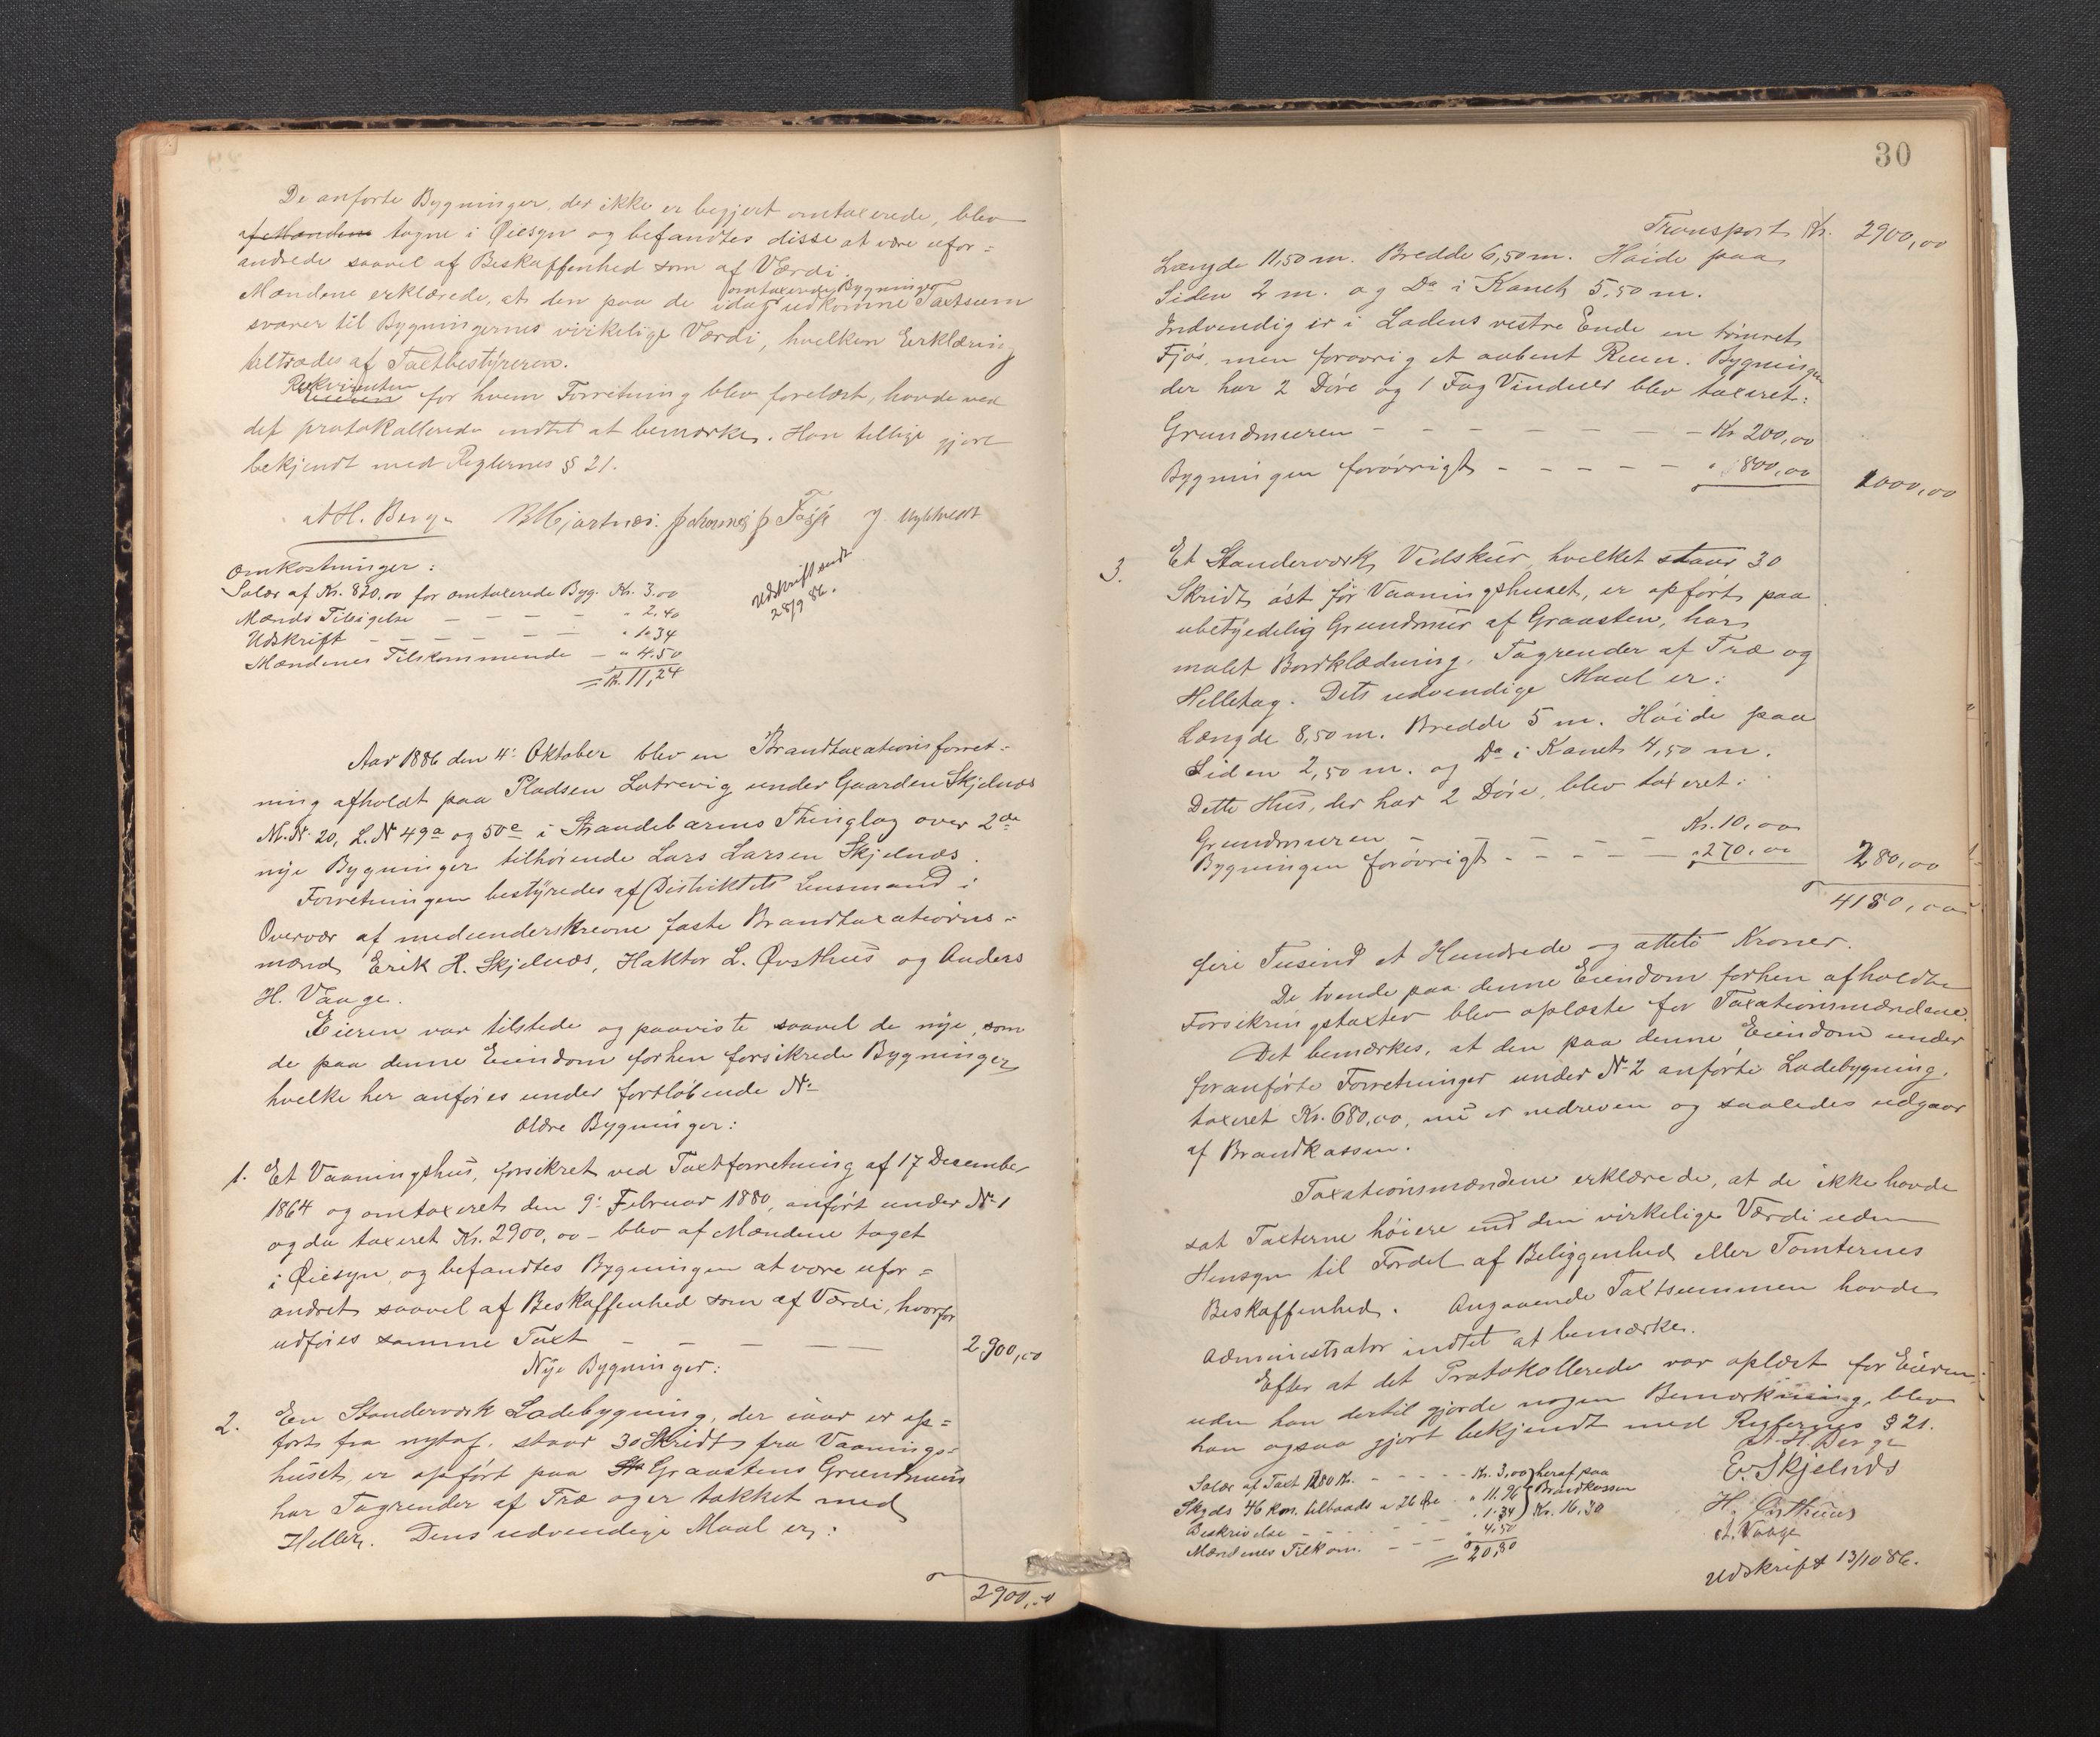 De anførte Bygninger, der ikke er begjert omtaxerede, blev
af Mændene tagne i Øiesyn og befandtes disse at være ufor=
andrede saavel af Beskaffenhed som af Værdi.
Mændene erklærede, at den paa de idag omtaxerede Bygninger udkomne Taxtsum
svarer til Bygningernes virkelige Værdi, hvilken Erklæring
tiltrædes af Taxtbestyreren.
Rekvirenten
Eieren for hvem Forretning blev forelæst, havde ved
det protokollerede indtet at bemærke. Han tillige gjort
bekjendt med Reglernes § 21.
A H. Berge
Omkostninger:
Salær af Kr. 820,00 for omtaxerede Byg. Kr. 3.00
Mænds Tilsigelse — — — — " 2.40
Udskrift — — — — — " 1.34
Mændenes Tilkommende — " 4.50
Kr. 11,24
Udskrift sendt
28/9 86.
Aar 1886 den 4: Oktober blev en Brandtaxationsforret=
ning afholdt paa Pladsen Latrevig under Gaarden Skjelnæs
M. N. 20, L. N 49a og 50e i Strandebarms Thinglag over 2de
nye Bygninger tilhørende Lars Larsen Skjelnæs.
Forretningen bestyredes af Distriktets Lensmand i
Overvær af medunderskrevne faste Brandtaxations-
mænd Erik H. Skjelnæs, Haktor L. Øvsthus og Anders
H. Vaage.
Eieren var tilstede og paaviste saavel de nye, som
de paa denne Eiendom forhen forsikrede Bygninger
hvilke her anføres under fortløbende No
Ældre Bygninger:
1. Et Vaaningshus, forsikret ved Taxtforretning af 17 December
1864 og omtaxeret den 9: Februar 1880, anført under No 1
og da taxeret Kr. 2900,00 – blev af Mændene taget
i Øiesyn og befandtes Bygningen at være ufor=
andret saavel af Beskaffenhed som af Værdi, hvorfor
udføres samme Taxt — — — — 2900,00
Nye Bygninger:
2. En Standerværk Ladebygning, der iaar er op=
ført fra nyt af, staar 30 Skridt fra Vaanings=
huset, er opført paa Graastens Grundmur
har Tagrender af Træ og er takket med
Heller. Dens udvendige Maal er:
2900,00
30
Transport Kr. 2900,00
Længde 11,50 m. Bredde 6,50 m. Høide paa
Siden 2 m. og Do i Kanet 5,50 m.
Indvendig er i Ladens vestre Ende en tømret
Fjøs, men forøvrig et aabent Rum. Bygningen
der har 2 Døre og 1 Fag Vinduer blev taxeret:
Grundmuren — — — — — — Kr 200,00
Bygningen forøvrigt — — — — — " 800,00
1000,00
3. Et Standerværk Vedskur, hvilket staar 30
Skridt øst for Vaaningshuset, er opført paa
ubetydelig Grundmur af Graasten, har
malet Bordklædning, Tagrender af Træ og
Helletag. Dets udvendige Maal er:
Længde 8,50 m. Bredde 5 m. Høide paa
Siden 2,50 m. og Do i Kanet 4,50 m.
Dette Hus, der har 2 Døre, blev taxeret:
Grundmuren — — — — Kr. 10,00
Bygningen forøvrigt — — — — " 270,00
280,00
4180,00
fire Tusind et Hundrede og otteti Kroner.
De tvende paa denne Eiendom forhen afholdte
Forsikringstaxter blev oplæste for Taxationsmændene.
Det bemærkes, at den paa denne Eiendom under
foranførte Forretninger under No 2 anførte Ladebygning,
taxeret Kr. 680,00, nu er nedreven og saaledes udgaar
af Brandkassen.
Taxationsmændene erklærede, at de ikke havde
sat Taxterne høiere end den virkelige Værdi uden
Hensyn til Fordel af Beliggenhed eller Tomternes
Beskaffenhed. Angaaende Taxtsummen havde
Administrator indtet at bemærke.
Efter at det Protokollerede var oplæst for Eieren,
uden han dertil gjorde nogen Bemærkning, blev
han ogsaa gjort bekjendt med Reglernes § 21.
A. H. Berge
E. Skjelnæs
H. Østhuus
A. Vaage
Salær af Taxt 1280 Kr. — — — — Kr. 3,00
Skyds 46 km. tillands a 26 Øre " 11.96
Beskrivelse — — — — " 1.34
heraf paa
Brandkassen
Kr. 16,30
Mændenes Tilkom. — — — " 4.50
20,80
Udskrift 13/10 86.